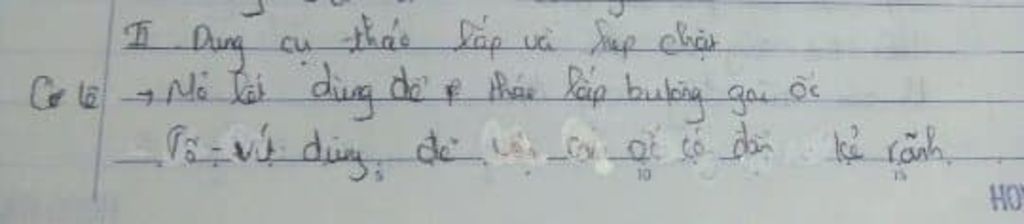 II Dụng cụ tháo lắp và kẹp chặt
Cờ lê → Mỏ lết dùng để tháo lắp bulông gai ốc
Tô - vít dùng để ốc có đầu kẻ rãnh.
10
15
HO